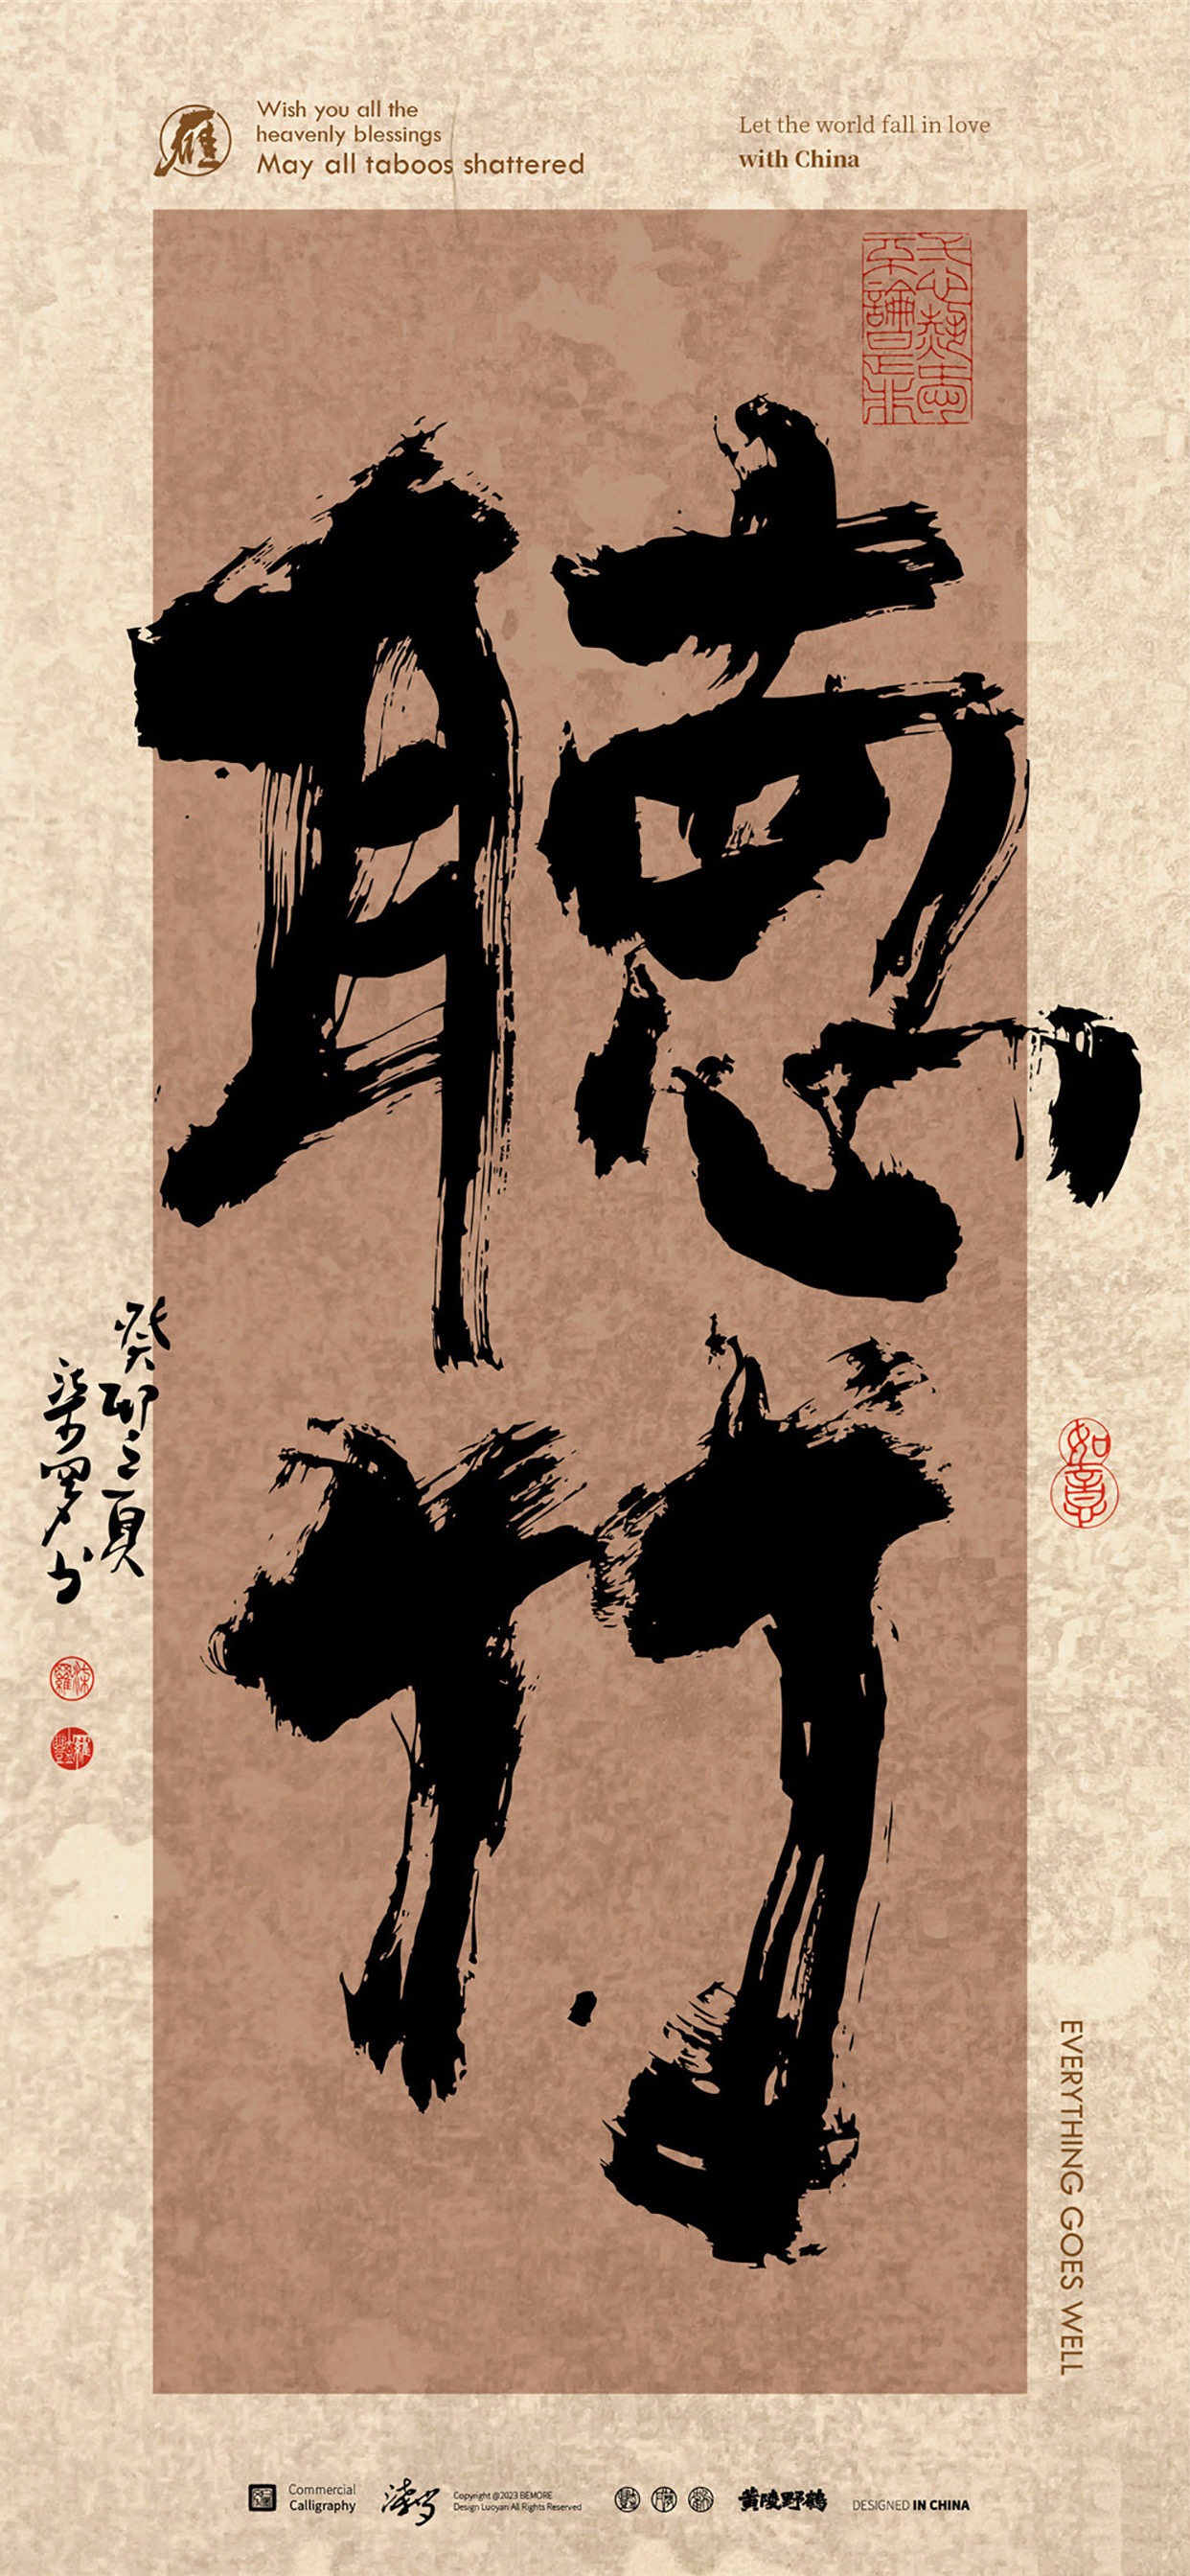 Wish you all the
heavenly blessings
May all taboos shattered
Let the world fall in love
with China
聽
竹
癸卯之夏
柒罗书
如意
EVERYTHING GOES WELL
Commercial
Calligraphy
Copyright @2023 BEMORE
Design Luoyan All Rights Reserved
黄陵野鹤
DESIGNED IN CHINA